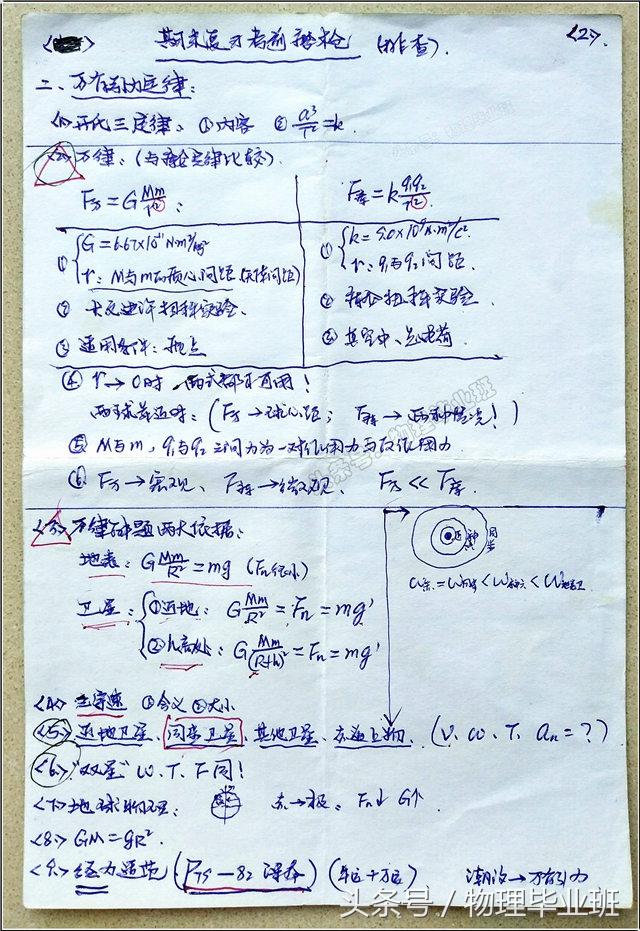 期末复习考前 (排查). <2>.
二、万有引力定律:
<1> 开氏三定律: ① 内容 ② a³/T² = k.
<2> 万律: (与库仑定律比较).
F万 = G Mm/r² ; F库 = k q₁q₂/r².
① { G = 6.67×10⁻¹¹ N·m²/kg² ① { k = 9.0×10⁹ N·m²/C².
r: M与m的质心间距 r: q₁与q₂间距.
② 卡文迪许扭秤实验. ② 库仑扭秤实验.
③ 适用条件: 质点 ③ 真空中、点电荷
④ r→0时, 两式都不可用!
两球靠近时: (F万→球心距; F库→两种情况!)
⑤ M与m, q₁与q₂之间力为一对作用力与反作用力
⑥ F万→宏观、F库→微观、 F万 << F库.
<3> 万律解题两大依据:
地表: G Mm/R² = mg (Fn很小)
卫星: { ① 近地: G Mm/R² = Fn = mg'
② h高处: G Mm/(R+h)² = Fn = mg'
近 神六 同步
ω赤 = ω同步 < ω神六 < ω近地卫
<4> 三宇速 ① 含义 ② 大小
<5> 近地卫星、同步卫星、其他卫星、赤道上物. (V. ω. T. an = ?)
<6> "双星" ω. T. F同!
<7> 地球物理: 赤→极: Fn↓ G↑
<8> GM = gR².
<9> (P75 — 82 课本) 潮汐→万有引力
头条号 / 物理毕业班